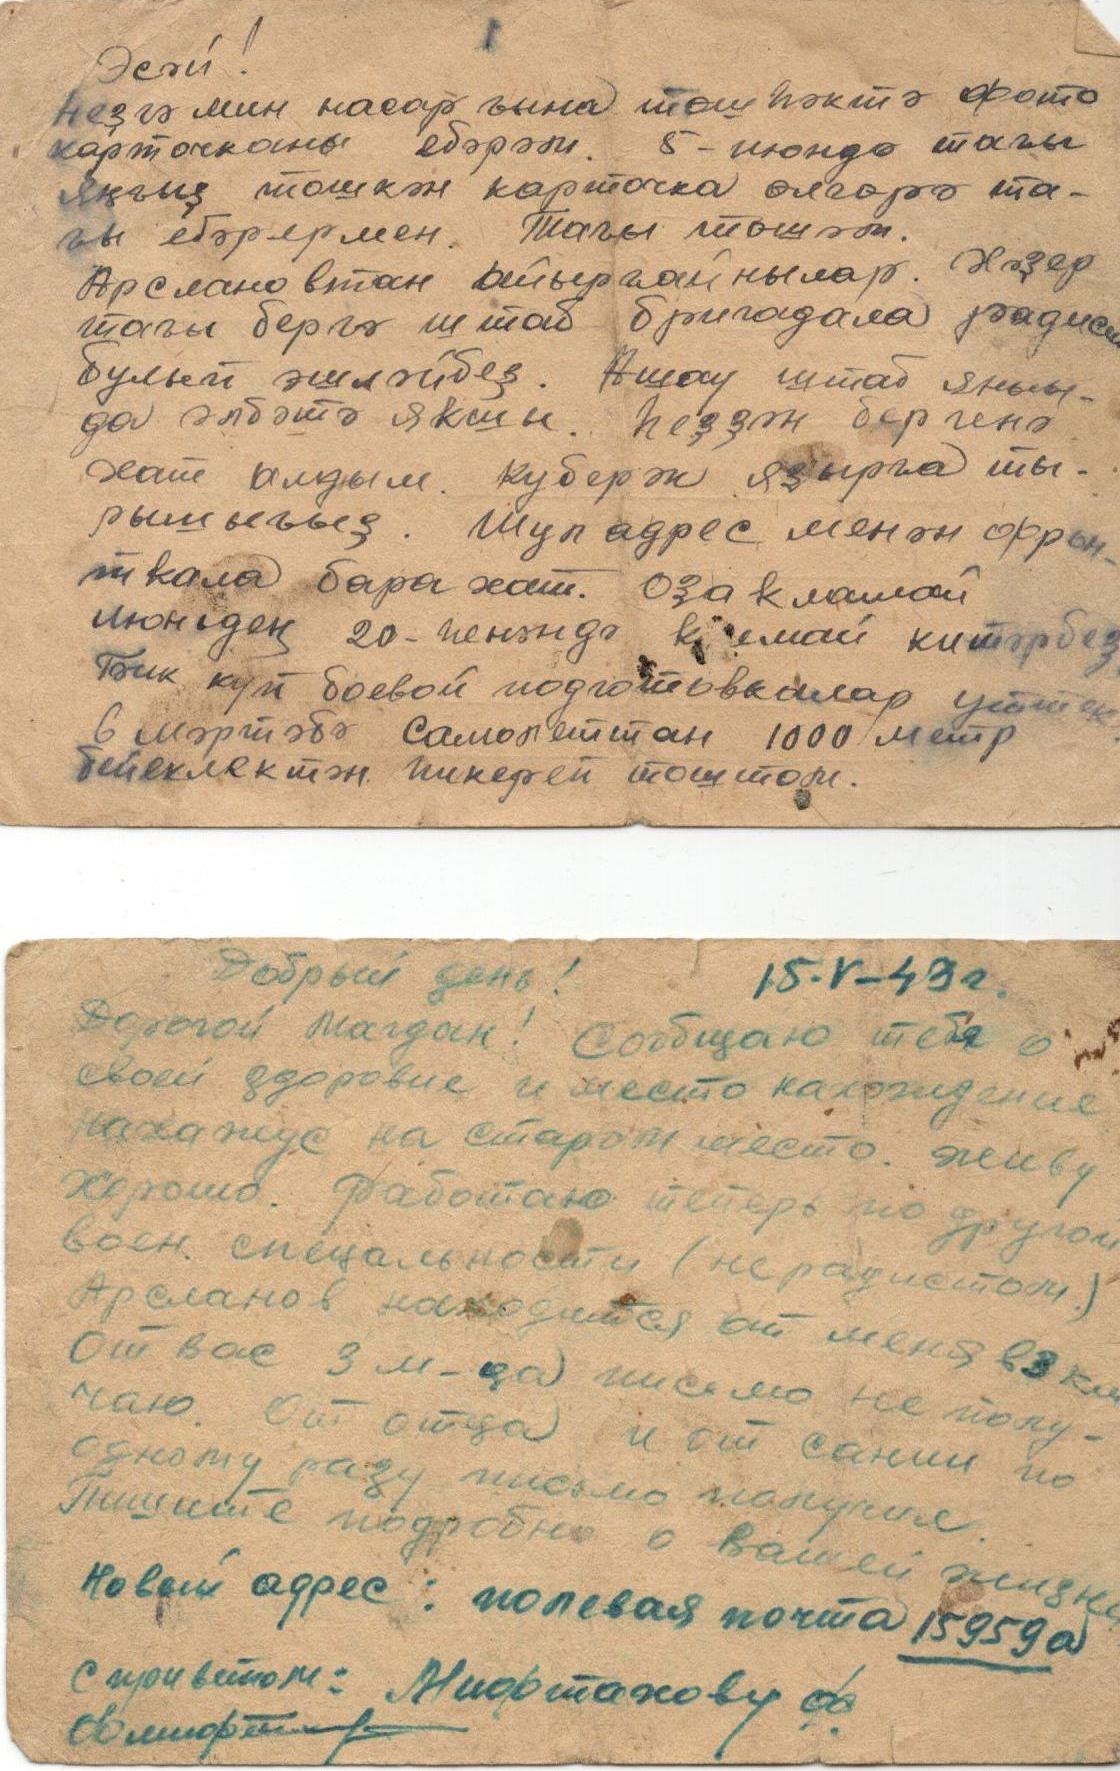 Эсәй!
Һеҙгә мин насар ғына төшһәктә фото
карточканы ебәрәм. 5-июндә тағы
яңғыҙ төшкән карточка өлгөрә та-
ғы ебәрермен. Тағы төшәм.
Арслановтан айырғайнылар. Хәҙер
тағы бергә штаб бригадала радист
булып эшләйбеҙ. Ашау штаб янын-
да әлбәтә якшы. Һеҙҙән бергенә
хат алдым. Куберәк яҙырға ты-
рышығыҙ. Шул адрес менән фрон-
твала бара хат. Оҙакламай
июньдең 20-һенәндә китәрбеҙ
Тик күп боевой подготовкалар үттек
6 мәртәбә самолеттан 1000 метр
бейеклектән һикереп төштөм.
Добрый день! 15-V-43г.
Дорогой Магдан! Сообщаю тебя о
своей здоровие и место нахождение
нахажус на старом место. Живу
хорошо. Работаю теперь по другой
воен. спецальности (не радистом.)
Арсланов находится от меня в 3 км
От вас 3 м-ца писмо не полу-
чаю. От отца и от сании по
одному разу письмо получил.
Пишите подробно о вашей жизни
Новый адрес: полевая почта 15959а
с приветом: Мифтахову ф.